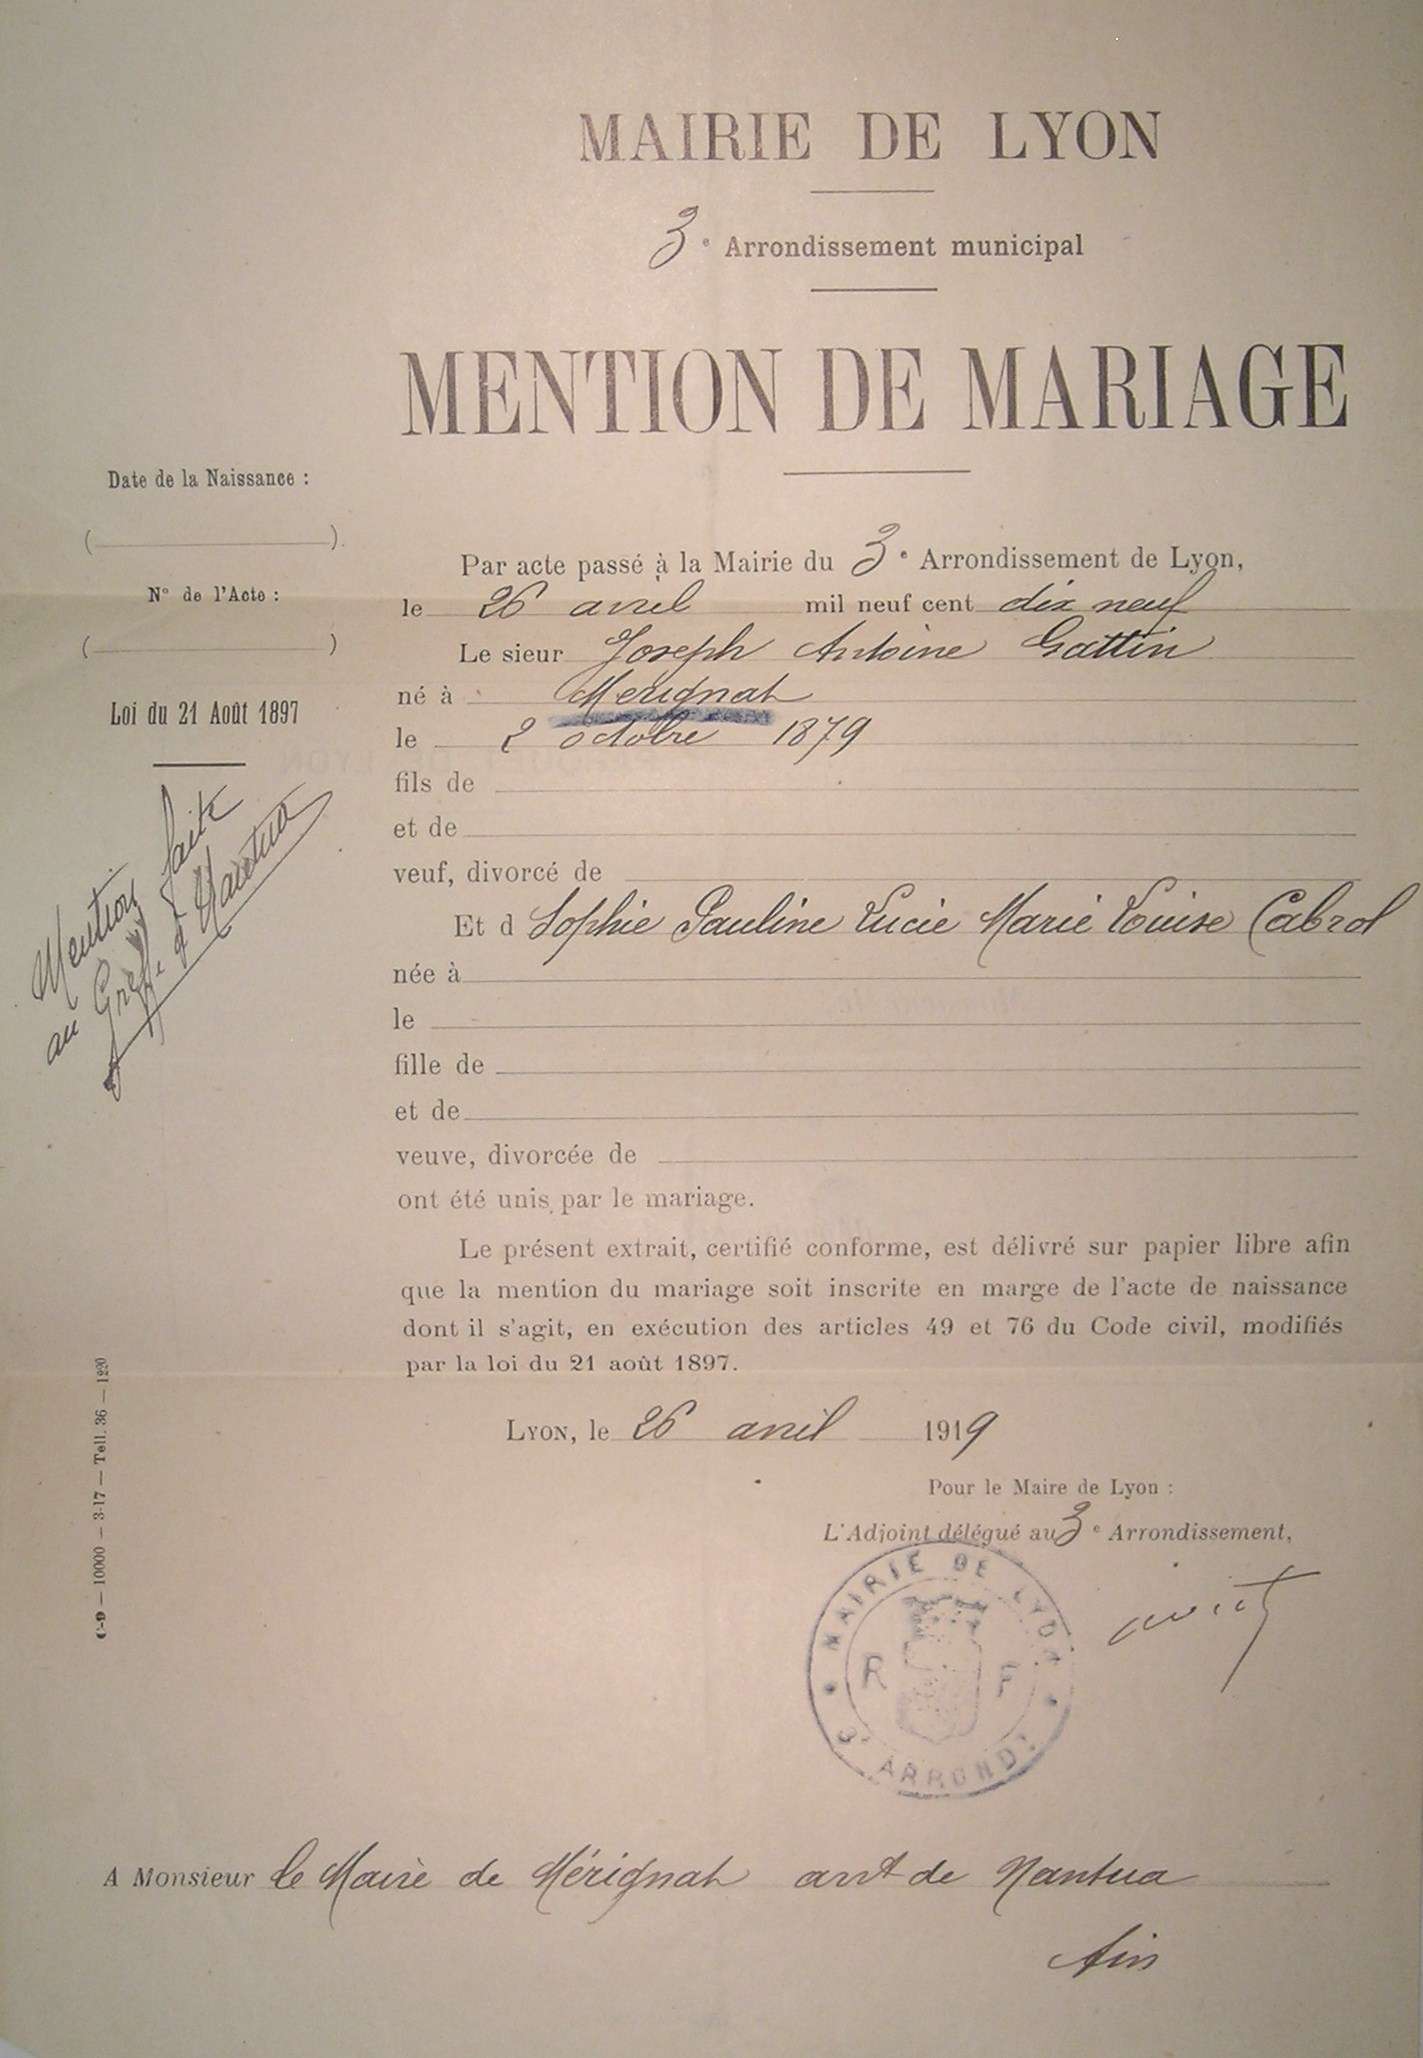 MAIRIE DE LYON
3e Arrondissement municipal
MENTION DE MARIAGE
Date de la Naissance :
( ).
N° de l'Acte :
( )
Loi du 21 Août 1897
Mention faite
au Greffe d Nantua
Par acte passé à la Mairie du 3e Arrondissement de Lyon,
le 26 avril mil neuf cent dix neuf
Le sieur Joseph Antoine Gattin
né à Merignat
le 2 octobre 1879
fils de
et de
veuf, divorcé de
Et d Sophie Pauline Lucie Marie Louise Cabrol
née à
le
fille de
et de
veuve, divorcée de
ont été unis par le mariage.
Le présent extrait, certifié conforme, est délivré sur papier libre afin
que la mention du mariage soit inscrite en marge de l'acte de naissance
dont il s'agit, en exécution des articles 49 et 76 du Code civil, modifiés
par la loi du 21 août 1897.
LYON, le 26 avril 1919
Pour le Maire de Lyon :
L'Adjoint délégué au 3e Arrondissement,
MAIRIE DE LYON
R F
3e ARRONDt
C-9 — 10000 — 3-17 — Tell. 36 — 1220
A MONSIEUR le Maire de Mérignat arrt de Nantua
Ain